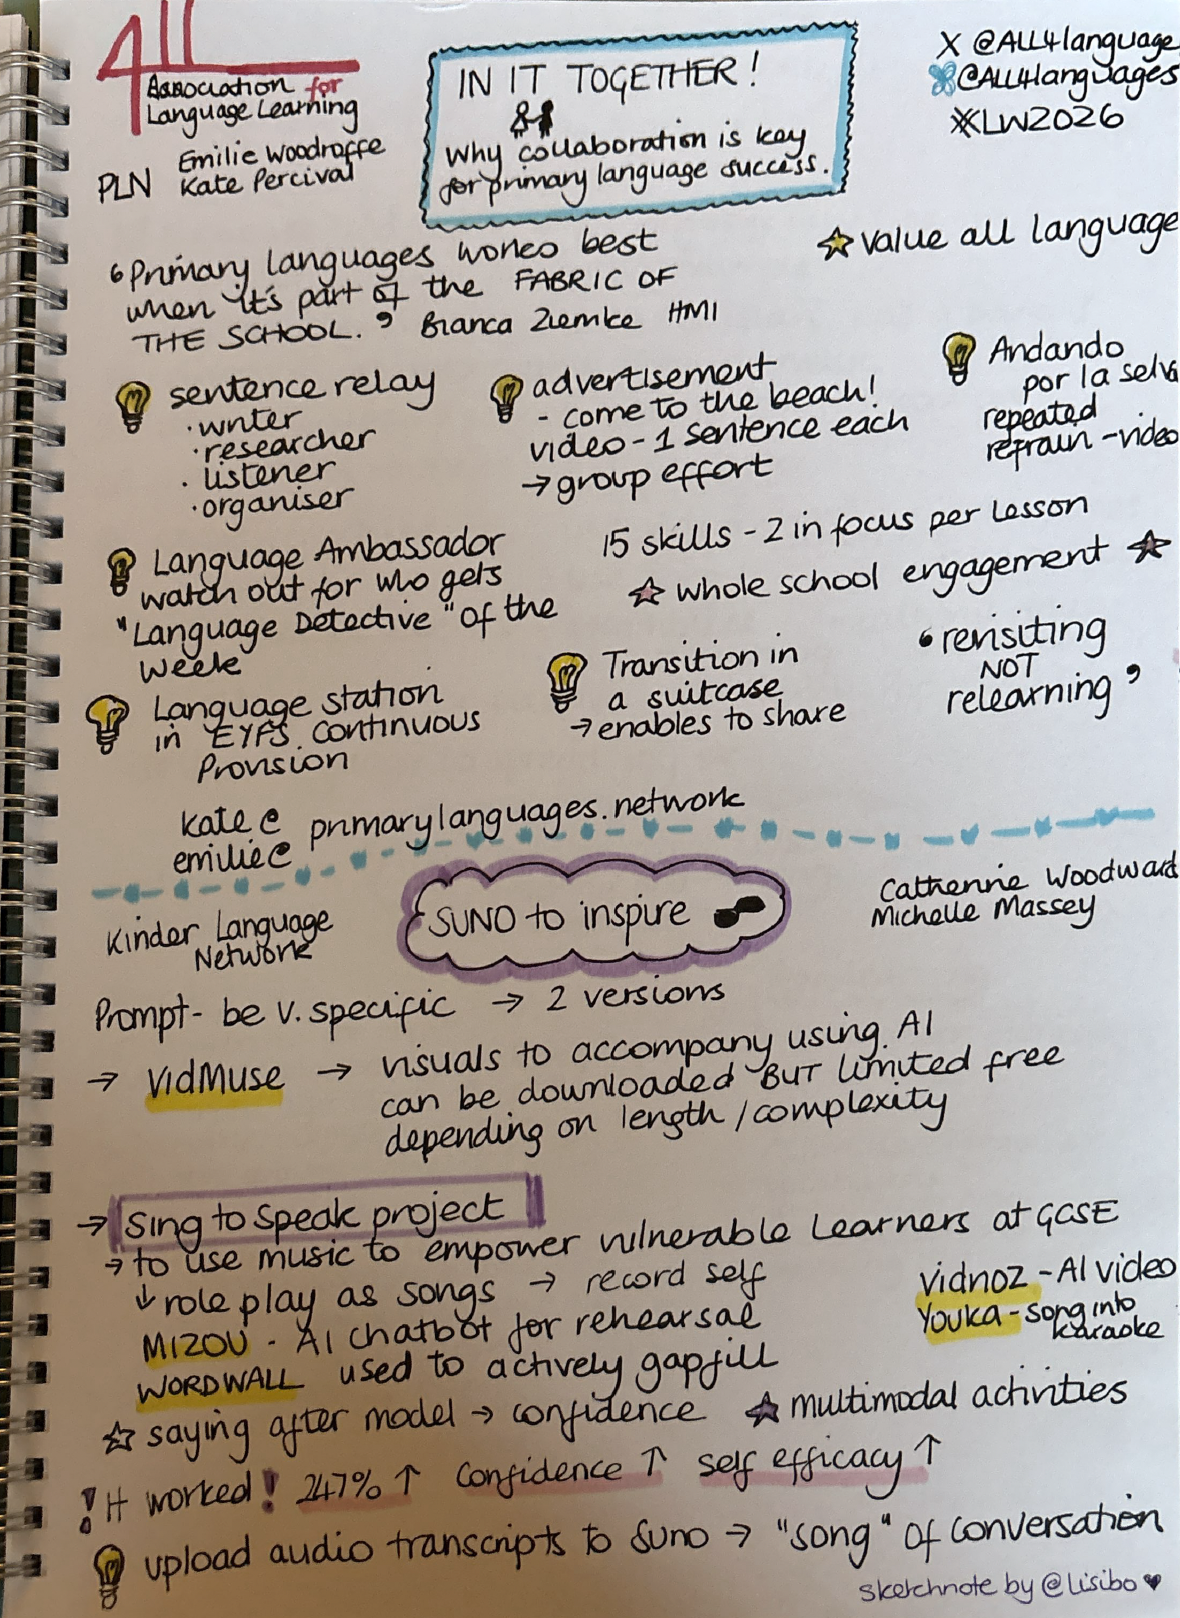 All
Association for
Language Learning
PLN Emilie Woodroffe
Kate Percival
IN IT TOGETHER!
Why collaboration is key
for primary language success.
X @ALL4language
@ALL4languages
#LW2026
value all language
'Primary languages works best
when it's part of the FABRIC OF
THE SCHOOL.' Bianca Ziemke HMI
sentence relay
· writer
· researcher
· listener
· organiser
advertisement
- come to the beach!
video - 1 sentence each
→ group effort
Andando
por la selva
repeated
refrain - video
Language Ambassador
watch out for who gets
"Language Detective" of the
week
15 skills - 2 in focus per lesson
whole school engagement
Language station
in EYFS Continuous
Provision
Transition in
a suitcase
→ enables to share
'revisiting
NOT
relearning'
kate@ primarylanguages.network
emilie@
Kinder Language
Network
SUNO to inspire
Catherine Woodward
Michelle Massey
Prompt - be v. specific → 2 versions
→ VidMuse → visuals to accompany using AI
can be downloaded BUT limited free
depending on length / complexity
→ Sing to Speak project
→ to use music to empower vulnerable learners at GCSE
↓ role play as songs → record self
MIZOU - AI chatbot for rehearsal
WORDWALL used to actively gapfill
Vidnoz - AI video
Youka - song into
karaoke
saying after model → confidence
multimodal activities
! It worked! 247% ↑ confidence ↑ self efficacy ↑
upload audio transcripts to Suno → "song" of conversation
sketchnote by @lisibo ♥